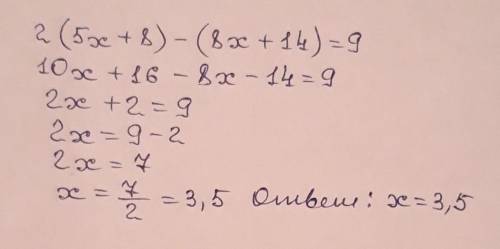 2(5x+8)-(8x+14)=9
10x+16-8x-14=9
2x+2=9
2x=9-2
2x=7
x=7/2=3,5 Ответ: x=3,5